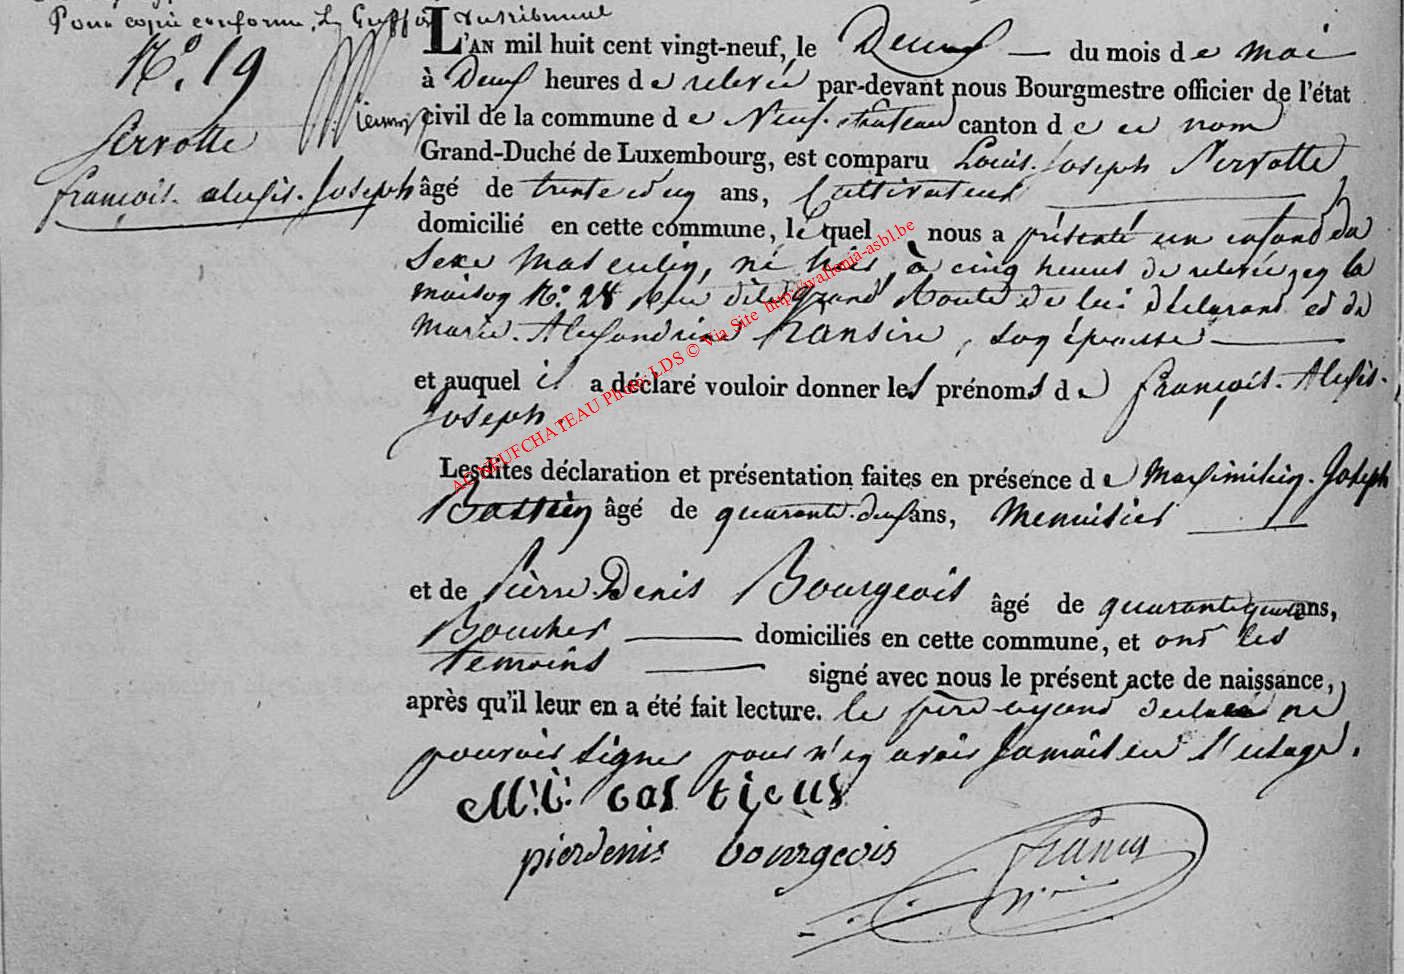 Pour copie conforme, Le Greffier du tribunal
N.o 19
Servotte
françois. alexis. Joseph
L'AN mil huit cent vingt-neuf, le Deux — du mois de mai
à Deux heures de relevée par-devant nous Bourgmestre officier de l'état
civil de la commune de Neufchâteau canton de ce nom
Grand-Duché de Luxembourg, est comparu Louis. Joseph Servotte
âgé de trente cinq ans, Cultivateur
domicilié en cette commune, lequel nous a présenté un enfant du
Sexe Masculin, né hier, à cinq heures de relevée, en la
maison N.o 28 Rue dite grand Route de lui déclarant et de
Marie. Alexandrine Fransire, son épouse —
et auquel il a déclaré vouloir donner les prénoms de françois. Alexis.
Joseph.
Lesdites déclaration et présentation faites en présence de Maximilien. Joseph
Bastien âgé de quarante. deux ans, Menuisier —
et de Pierre. Denis Bourgeois âgé de quarante ans,
Boucher — domiciliés en cette commune, et ont les
temoins — signé avec nous le présent acte de naissance,
après qu'il leur en a été fait lecture. le père ayant déclaré ne
pouvoir signer pour n'en avoir jamais eu l'usage.
pierdenis bourgeois
AE NEUFCHATEAU Photo LDS © Via Site http://wallonia-asbl.be